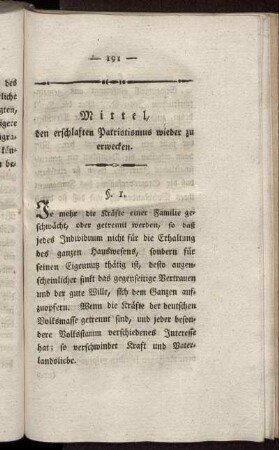 — 191 —
Mittel,
den erschlaften Patriotismus wieder zu
erwecken.
§. 1.
Je mehr die Kräfte einer Familie ge-
schwächt, oder getrennt werden, so daß
jedes Individuum nicht für die Erhaltung
des ganzen Hauswesens, sondern für
seinen Eigennutz thätig ist, desto augen-
scheinlicher sinkt das gegenseitige Vertrauen
und der gute Wille, sich dem Ganzen auf-
zuopfern. Wenn die Kräfte der deutschen
Volksmasse getrennt sind, und jeder beson-
dere Volksstamm verschiedenes Interesse
hat; so verschwindet Kraft und Vater-
landsliebe.